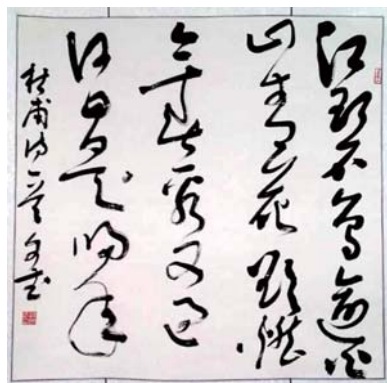 江碧鸟逾白
山青花欲燃
今春看又过
何日是归年
杜甫诗一首